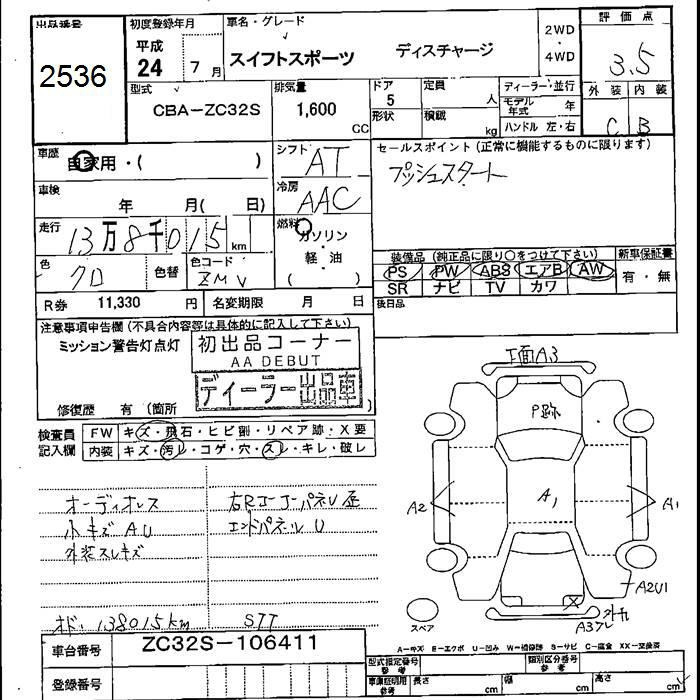 出品番号
2536
初度登録年月
平成
24 7 月
車名・グレード
スイフトスポーツ ディスチャージ
2WD
・
4WD
評価点
3.5
外装 内装
C B
型式
CBA-ZC32S
排気量
1,600
CC
ドア
5
形状
定員
人
積載
kg
ディーラー・並行
モデル年式 年
ハンドル 左・右
車歴
自家用・( )
シフト
AT
セールスポイント (正常に機能するものに限ります)
プッシュスタート
車検
年 月( 日)
冷房
AAC
走行
13万8千015 km
燃料
ガソリン
・
軽・油
( )
色
クロ
色替
色コード
ZMV
装備品 (純正品に限り○をつけて下さい)
PS PW ABS エアB AW
SR ナビ TV カワ
新車保証書
有・無
後日品
R券 11,330 円
名変期限 月 日
注意事項申告欄 (不具合内容等は具体的に記入して下さい)
ミッション警告灯点灯
初出品コーナー
AA DEBUT
ディーラー出品車
修復歴 有 (箇所
検査員
記入欄
FW キズ・飛石・ヒビ割・リペア跡・X要
内装 キズ・汚レ・コゲ・穴・スレ・キレ・破レ
オーディオレス
小キズ AU
外装スレキズ
オド:138015km
右Rコーナーパネル歪
エンドパネル U
STT
下面A3
P跡
A1
A2
A1
A2U1
X
外カ
A3フレ
スペア
A-キズ E-エクボ U-凹み W-補修跡 S-サビ C-腐食 XX-交換済
車台番号
ZC32S-106411
登録番号
型式指定番号
参考
類別区分番号
参考
車庫証明用
参考
長さ cm
幅 cm
高さ cm